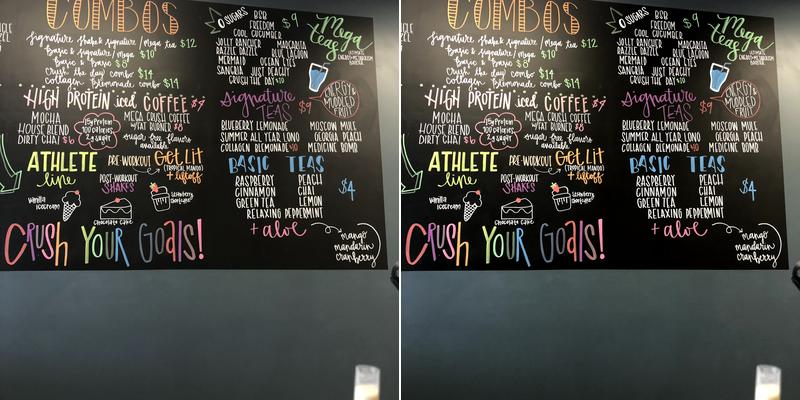 COMBOS
signature shake & signature / mega tea $12
Basic & signature / mega $10
Basic & Basic $8
Crush the day combo $14
Collagen Blemonade combo $14
HIGH PROTEIN iced COFFEE $7
MOCHA
HOUSE BLEND
DIRTY CHAI $6
15g Protein
100 calories
2g sugars
MEGA CRUSH COFFEE
w/FAT BURNER $8
sugar free flavors
available
ATHLETE
line
PRE-WORKOUT
GET LIT
(TROPICAL MANGO)
+ liftoff
POST-WORKOUT
SHAKES
vanilla
icecream
chocolate cake
strawberry
shortcake
CRUSH YOUR GOALS!
0 SUGARS
BSB
FREEDOM
COOL CUCUMBER
$9
Mega
teas
JOLLY RANCHER
RAZZLE DAZZLE
MERMAID
SANGRIA
MARGARITA
BLUE LAGOON
OCEAN EYES
JUST PEACHY
CRUSH THE DAY $10
signature
TEAS
$9
ENERGY &
MUDDLED
FRUIT
BLUEBERRY LEMONADE
SUMMER ALL YEAR LONG
COLLAGEN BLEMONADE $10
MOSCOW MULE
GEORGIA PEACH
MEDICINE BOMB
BASIC TEAS
RASPBERRY
CINNAMON
GREEN TEA
PEACH
CHAI
LEMON
RELAXING PEPPERMINT
$4
+ aloe
mango
mandarin
cranberry
COMBOS
signature shake & signature / mega tea $12
Basic & signature / mega $10
Basic & Basic $8
Crush the day combo $14
Collagen Blemonade combo $14
HIGH PROTEIN iced COFFEE $7
MOCHA
HOUSE BLEND
DIRTY CHAI $6
15g Protein
100 calories
2g sugars
MEGA CRUSH COFFEE
w/FAT BURNER $8
sugar free flavors
available
ATHLETE
line
PRE-WORKOUT
GET LIT
(TROPICAL MANGO)
+ liftoff
POST-WORKOUT
SHAKES
vanilla
icecream
chocolate cake
strawberry
shortcake
CRUSH YOUR GOALS!
0 SUGARS
BSB
FREEDOM
COOL CUCUMBER
$9
Mega
teas
JOLLY RANCHER
RAZZLE DAZZLE
MERMAID
SANGRIA
MARGARITA
BLUE LAGOON
OCEAN EYES
JUST PEACHY
CRUSH THE DAY $10
signature
TEAS
$9
ENERGY &
MUDDLED
FRUIT
BLUEBERRY LEMONADE
SUMMER ALL YEAR LONG
COLLAGEN BLEMONADE $10
MOSCOW MULE
GEORGIA PEACH
MEDICINE BOMB
BASIC TEAS
RASPBERRY
CINNAMON
GREEN TEA
PEACH
CHAI
LEMON
RELAXING PEPPERMINT
$4
+ aloe
mango
mandarin
cranberry